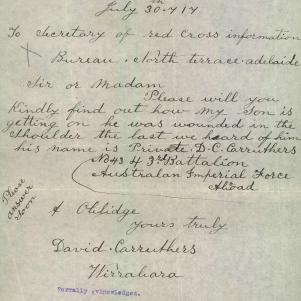 July 30th /17
To Secretary of red Cross information
Bureau. North terrace adelaide
Sir or Madam
Please will you
Kindly find out how my Son is
getting on he was wounded in the
Shoulder the last we heard of him
his name is Private. D. C. Carruthers
43 3rd Battalion
Australan Imperial Force
Abroad
Please
answer
Soon
& Oblidge
yours truly
David. Carruthers
Wirrabara
Formally acknowledged.